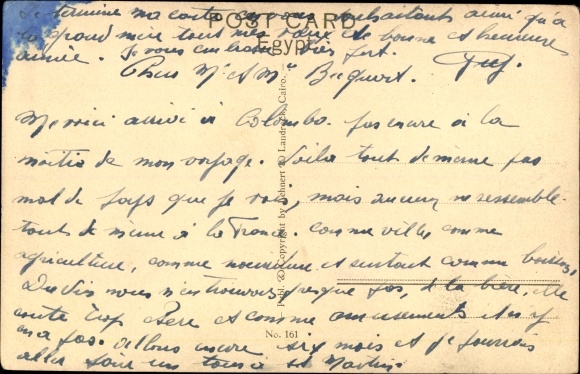 Je termine ma carte en vous souhaitant ainsi qu'à
POST CARD
la grand mère tous mes vœux de bonne et heureuse
Egypt
année. Je vous embrasse très fort.
Chers Mr et Me Becquart.
Me voici arrivé à Colombo. pas encore à la
moitié de mon voyage. Voila tout de meme pas
mal de pays que je vois, mais aucun ne ressemble
tout de meme à la France. comme villes, comme
agriculture, comme nourriture et surtout comme boisson,
Du vin nous n'en trouvons presque pas, de la bière, elle
coute trop chère et comme amusements il n'y
en a pas. allons encore six mois et je pourrai
aller faire un tour à St Martin.
Publ. & Copyright by Lehnert & Landrock, Cairo.
No. 161